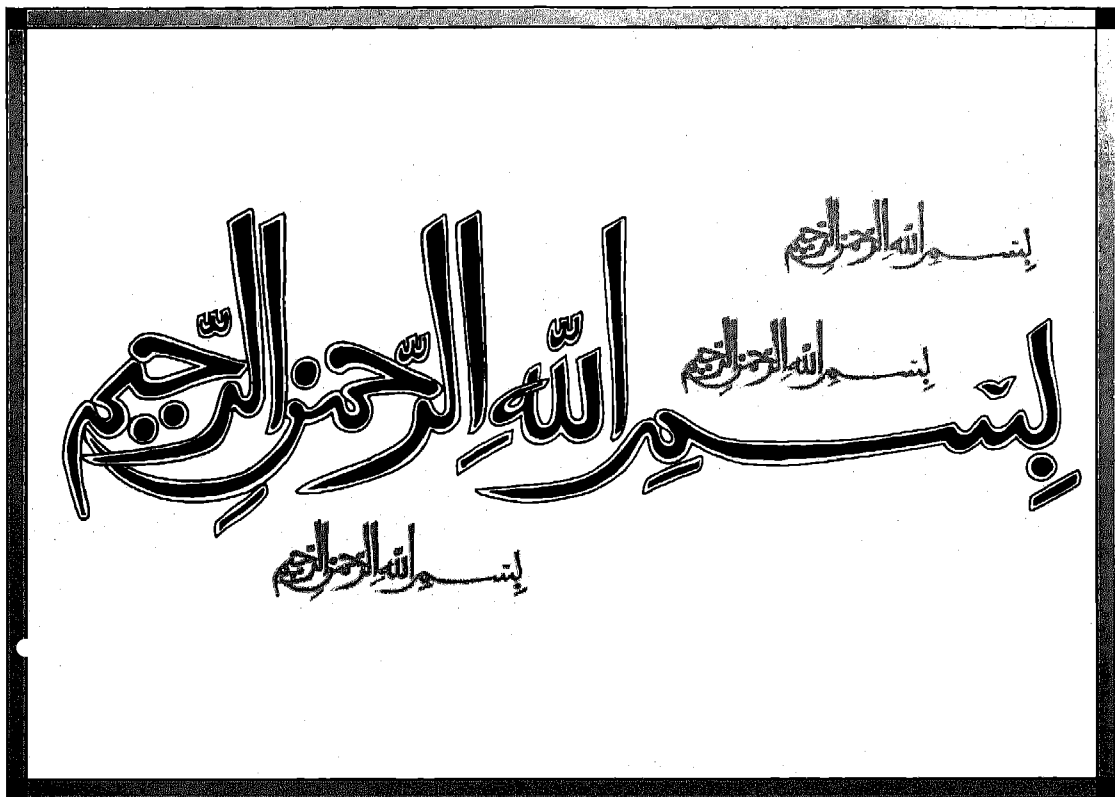 بسم الله الرحمن الرحيم
بسم الله الرحمن الرحيم
بِسْمِ اللّهِ الرّحمنِ الرّحیم
بسم الله الرحمن الرحيم